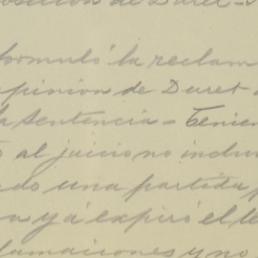 posición de Duret -
formuló la reclam
opinión de Duret
la sentencia - Tenien
al juicio no inclu
do una partida
ya expiró el té
lamaciones y no